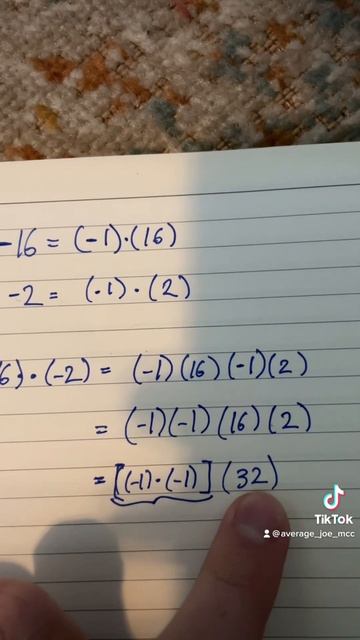 -16 = (-1)·(16)
-2 = (-1)·(2)
6)·(-2) = (-1)(16)(-1)(2)
= (-1)(-1)(16)(2)
= [(-1)·(-1)](32)
TikTok
@average_joe_mcc